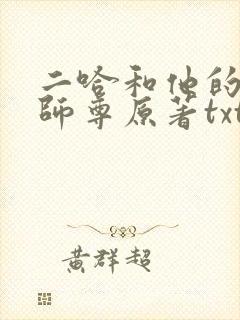 二哈和他的
師尊原著txt
黄群超